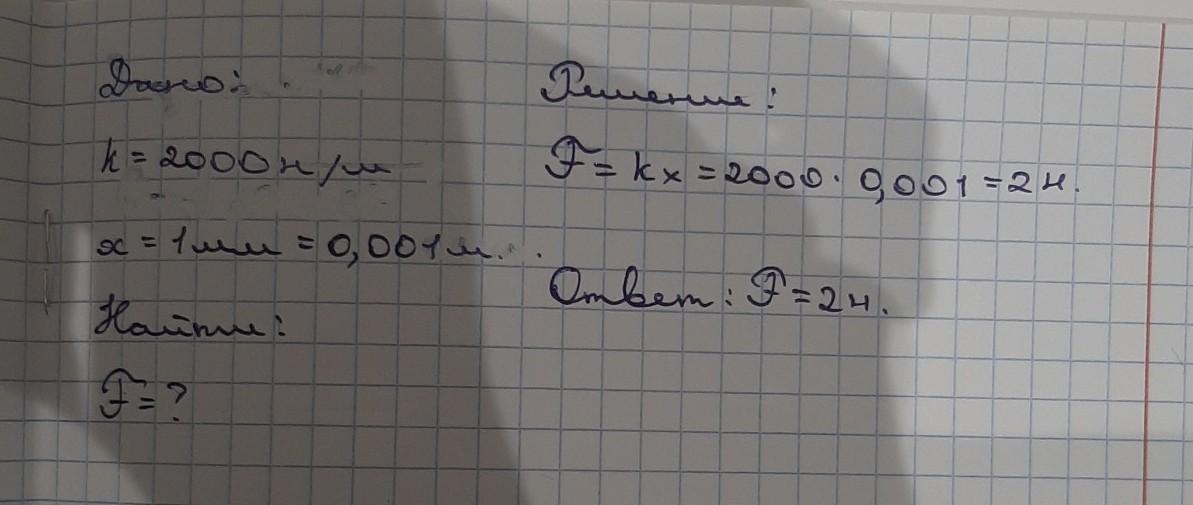 Дано:
k = 2000 н/м
x = 1 мм = 0,001 м.
Найти:
F = ?
Решение:
F = kx = 2000 · 0,001 = 2 н.
Ответ: F = 2 н.